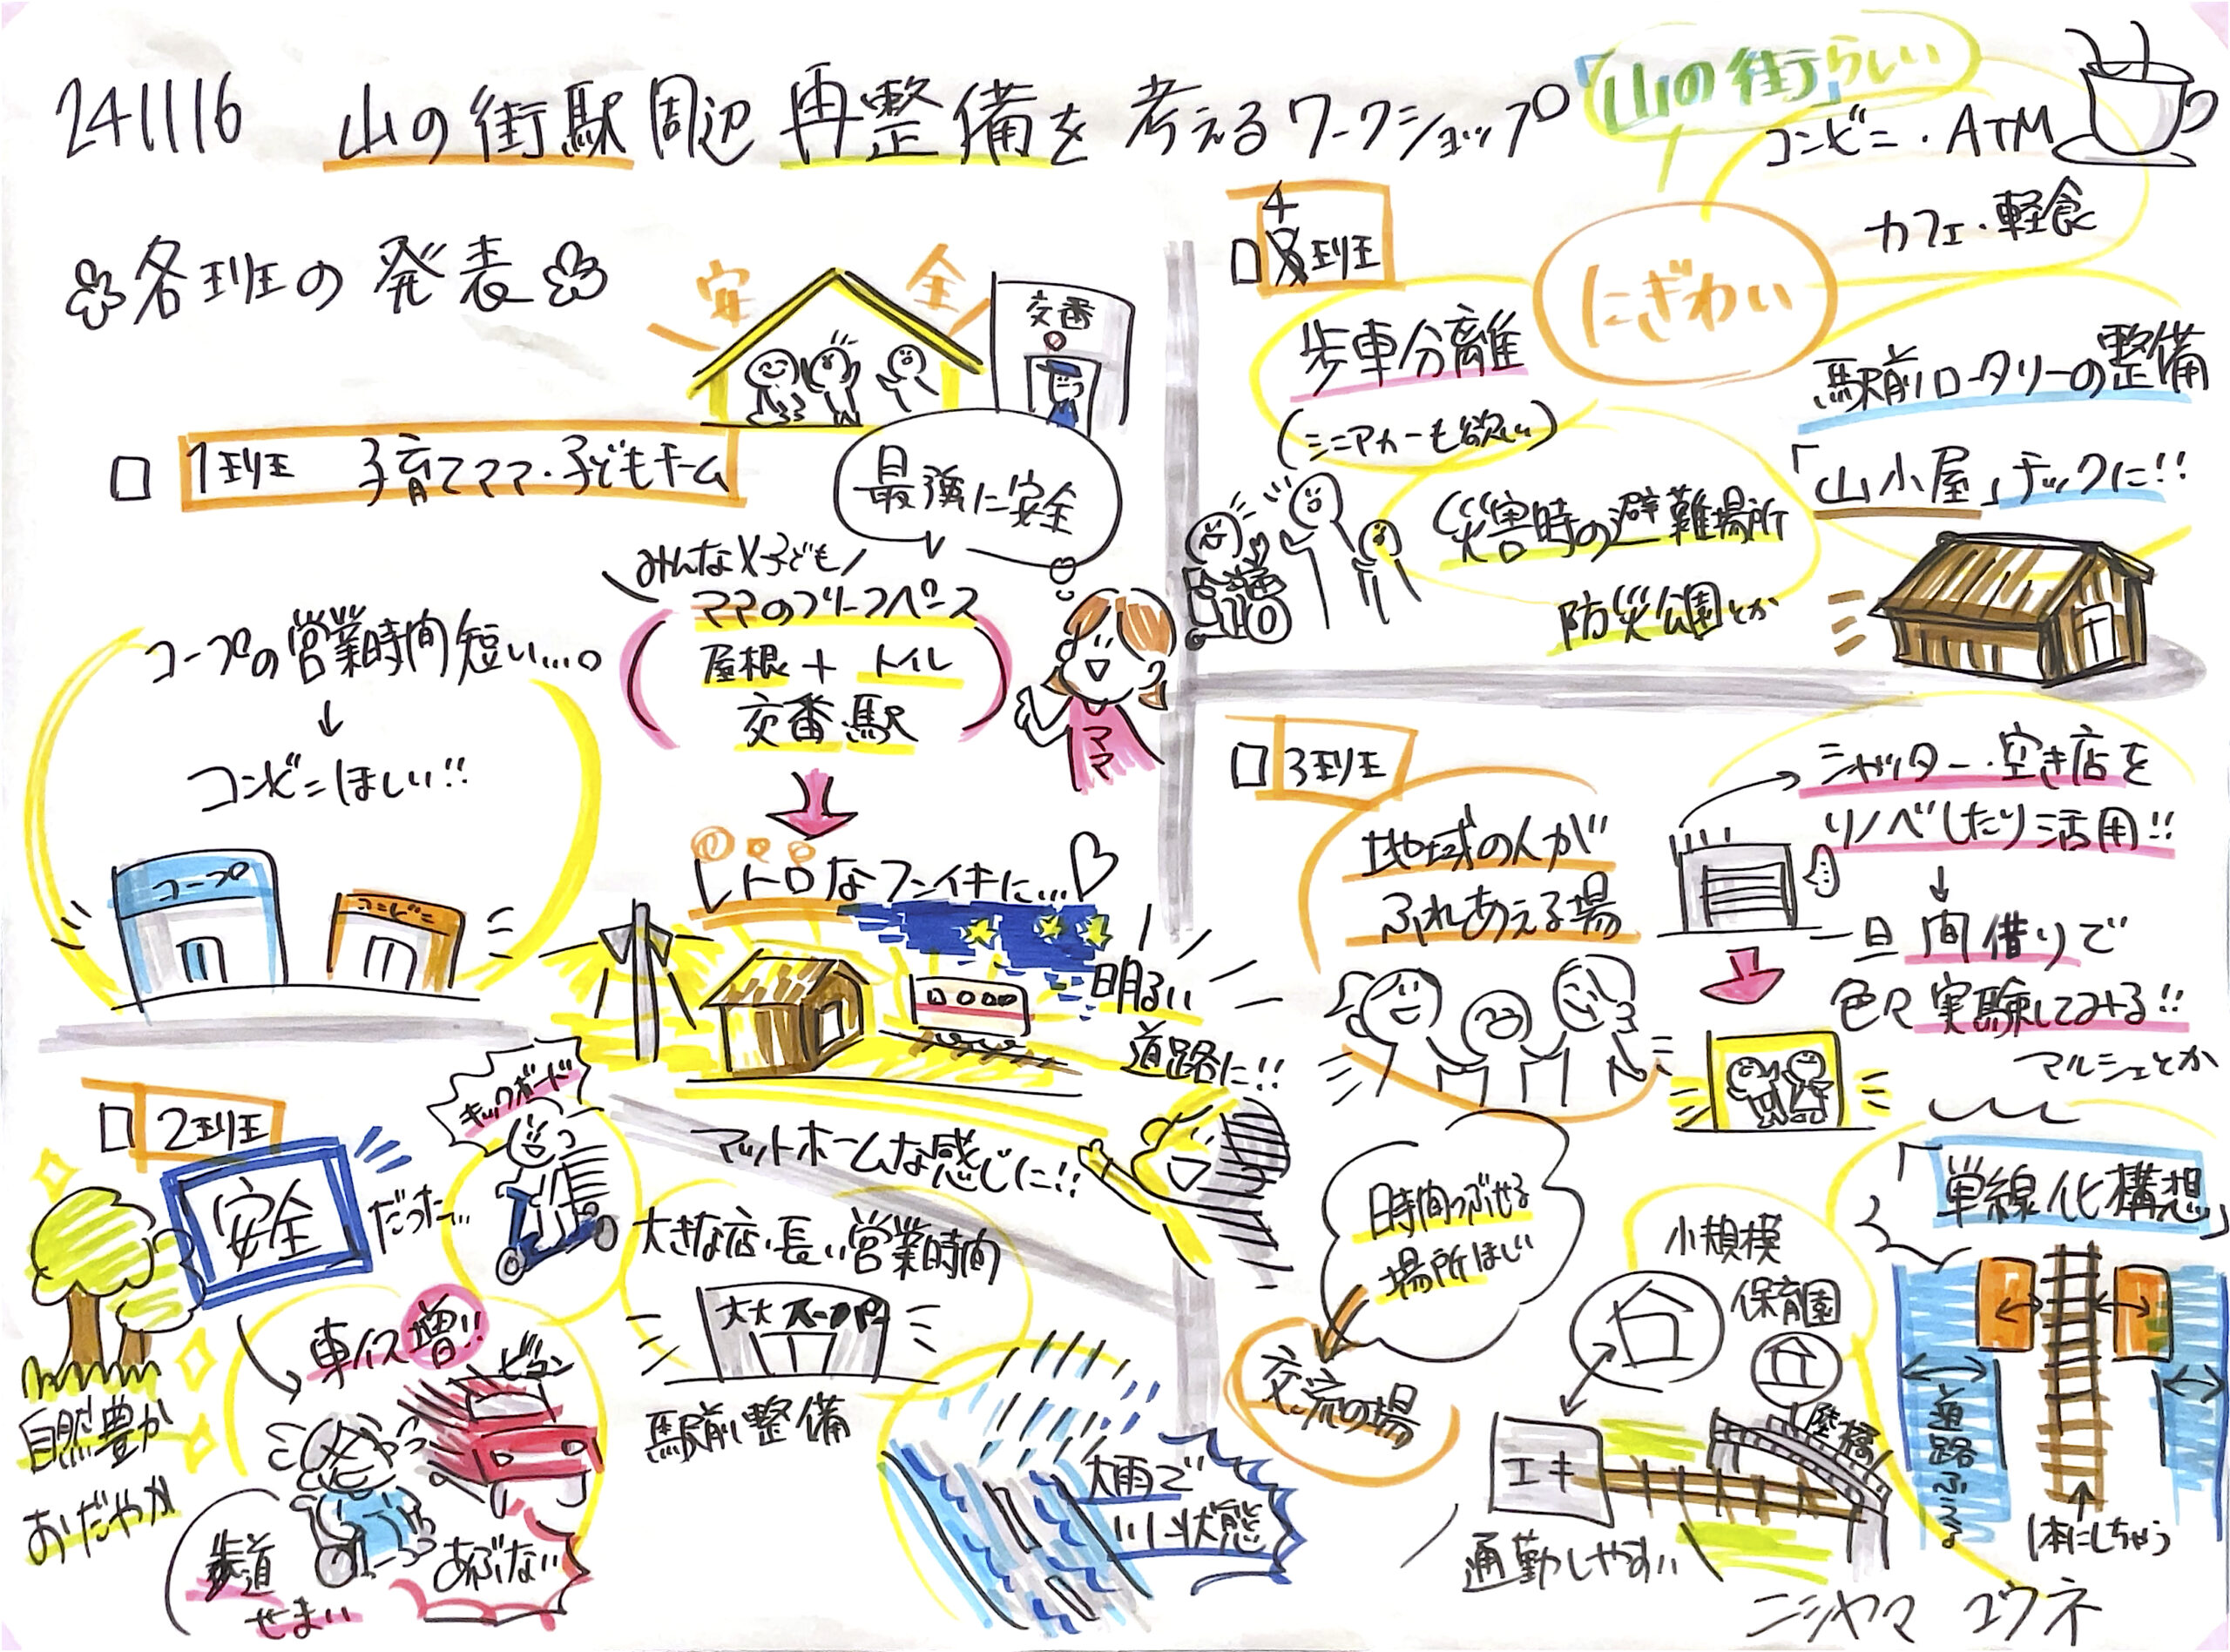 241116 山の街駅周辺再整備を考えるワークショップ
各班の発表
1班 子育てママ・子どもチーム
安全
交番
最強に安全
コープの営業時間短い…。
↓
コンビニほしい!!
コープ
コンビニ
みんな×子ども
ママのフリースペース
屋根+トイレ
交番 駅
ママ
レトロなフンイキに…♡
明るい
道路に!!
アットホームな感じに!!
2班
安全だった…
キックボード
自然豊か
おだやか
車イス増!!
ビュン
歩道
せまい
あぶない
大きな店・長い営業時間
大大スーパー
駅前整備
大雨で
川状態
4班
「山の街」らしい
にぎわい
コンビニ・ATM
カフェ・軽食
歩車分離
(ミニアカーも欲しい)
駅前ロータリーの整備
「山小屋」チックに!!
災害時の避難場所
防災公園とか
3班
地域の人が
ふれあえる場
シャッター・空き店を
リノベしたり活用!!
↓
一旦間借りで
色々実験してみる!!
マルシェとか
時間つぶせる
場所ほしい
交流の場
小規模
保育園
エキ
陸橋
通勤しやすい
「単線化構想」
道路ふえる
1本にしちゃう
ニシヤマ ユウネ